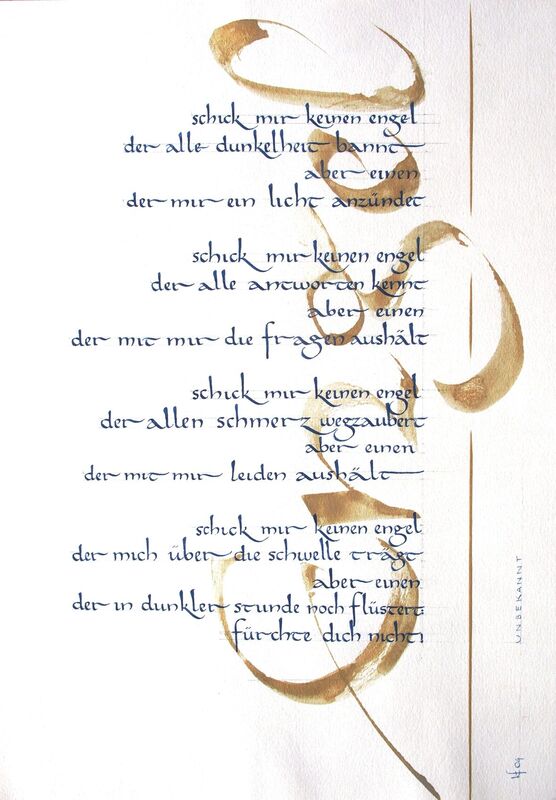 schick mir keinen engel
der alle dunkelheit bannt
aber einen
der mir ein licht anzündet
schick mir keinen engel
der alle antworten kennt
aber einen
der mit mir die fragen aushält
schick mir keinen engel
der allen schmerz wegzaubert
aber einen
der mit mir leiden aushält
schick mir keinen engel
der mich über die schwelle trägt
aber einen
der in dunkler stunde noch flüstert
fürchte dich nicht!
UNBEKANNT